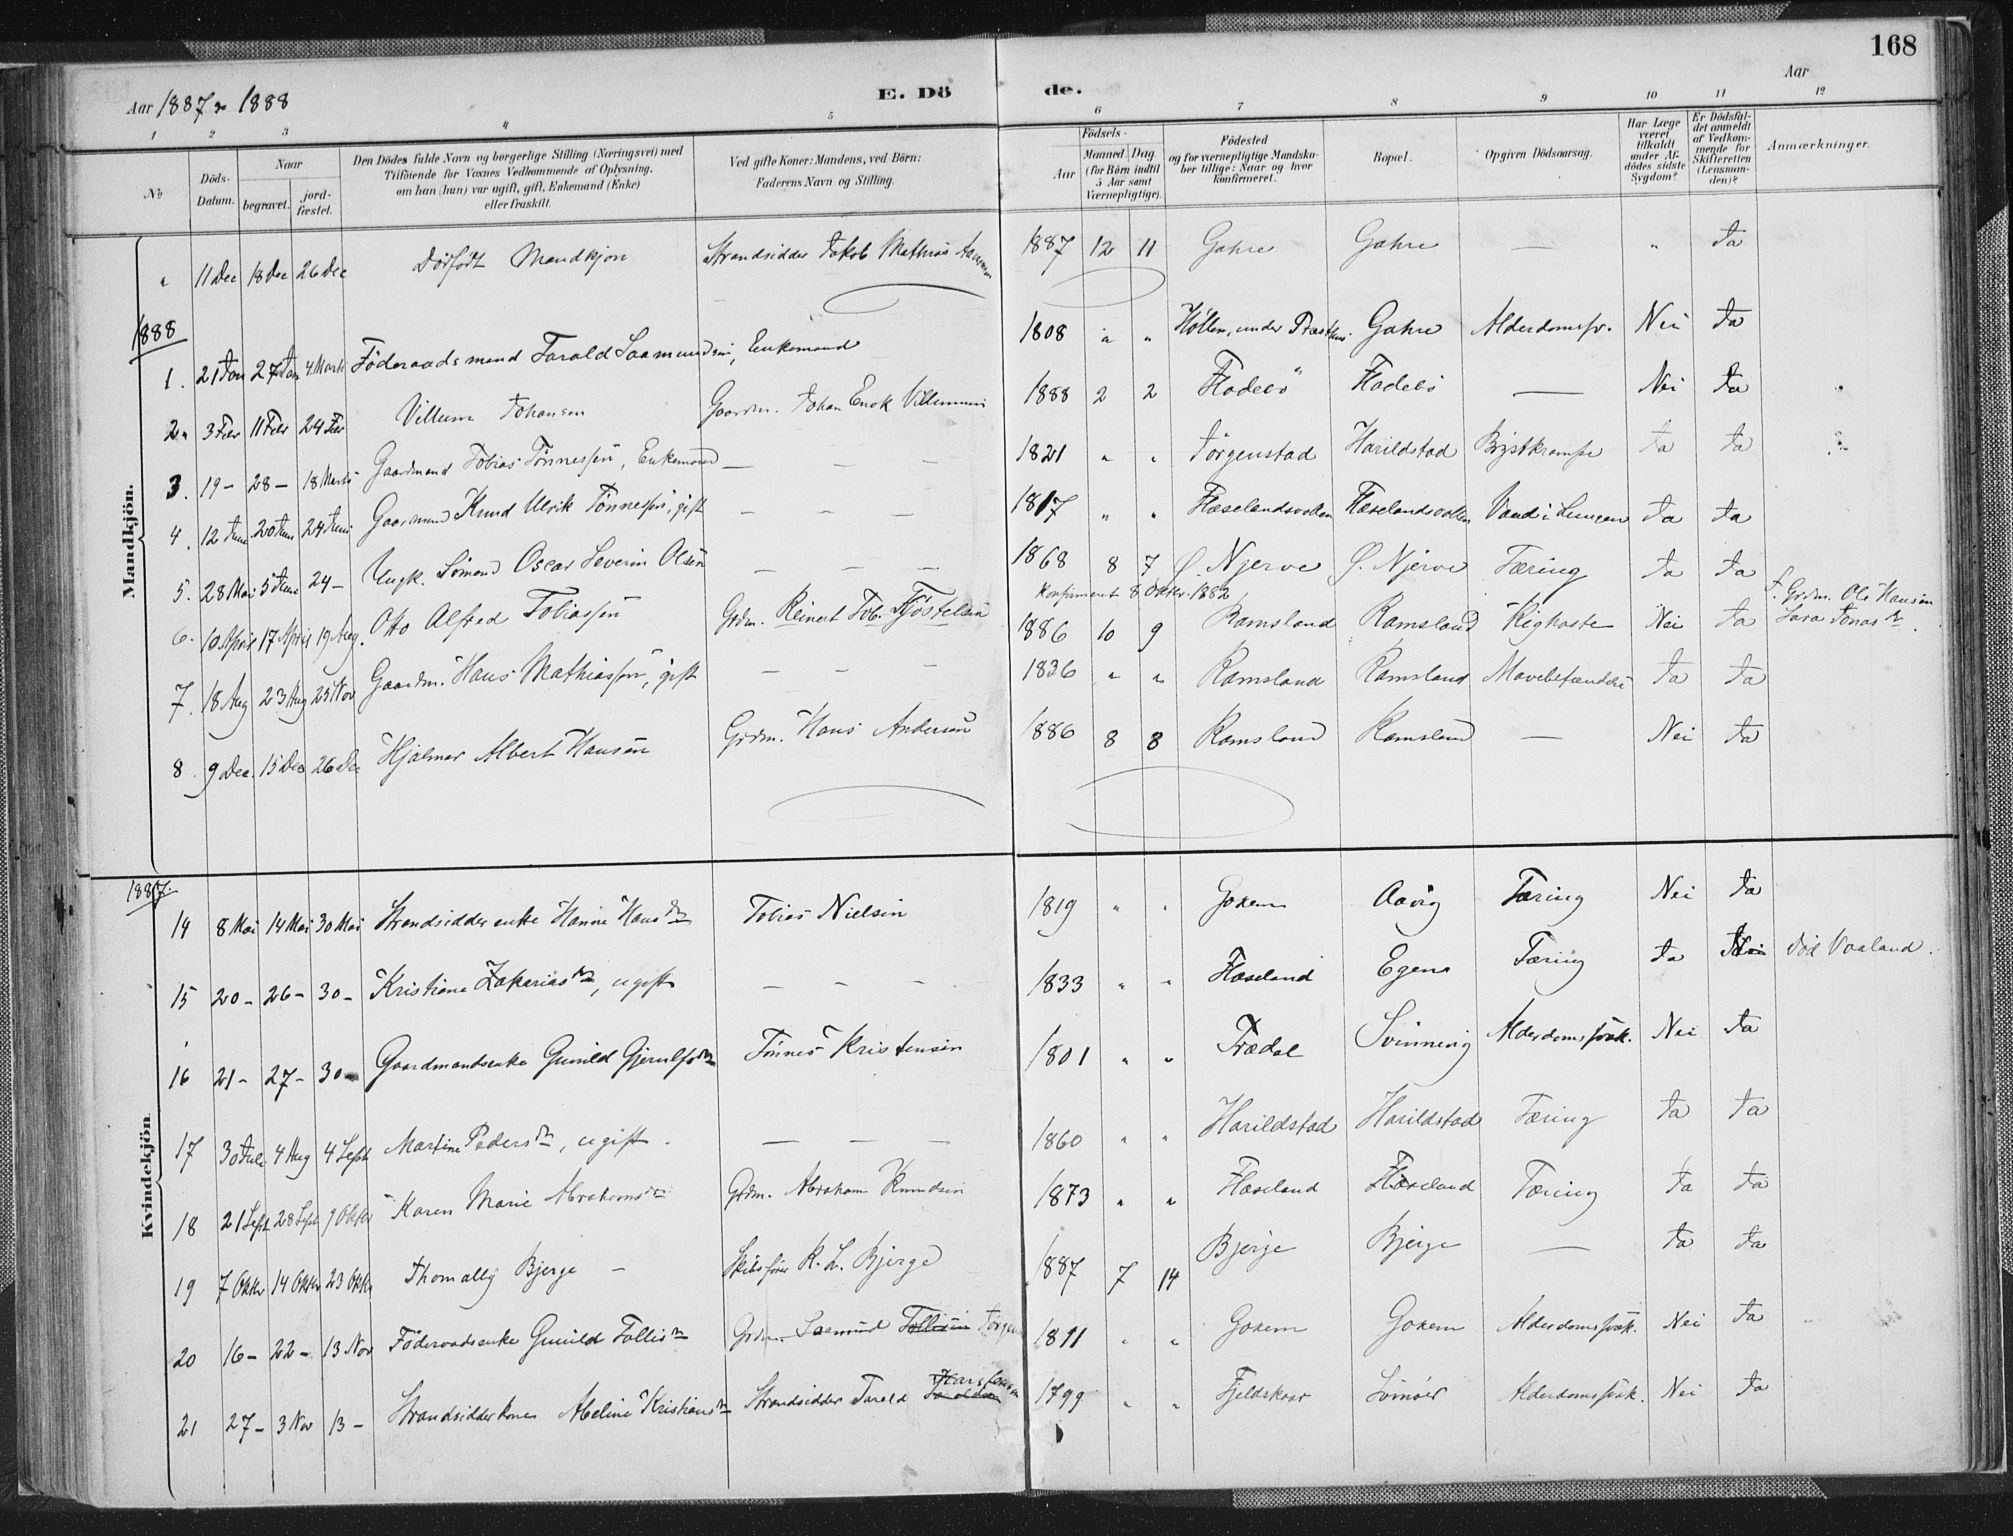 168
Aar 1887 & 1888
E. Dö de.
Aar
1 2 3 4 5 6 7 8 9 10 11 12
No
Döds-Datum.
Naar
begravet.
jord-fæstet.
Den Dödes fulde Navn og borgerlige Stilling (Næringsvei) med Tilföiende for Voxnes Vedkommende af Oplysning, om han (hun) var ugift, gift, Enkemand (Enke) eller fraskilt.
Ved gifte Koner: Mandens, ved Börn: Faderens Navn og Stilling.
Födsels-
Aar
Maaned. Dag.
(for Börn indtil 5 Aar samt Værnepligtige).
Födested og for værnepligtige Mandskaber tillige: Naar og hvor konfirmeret.
Bopæl.
Opgiven Dödsaarsag.
Har Læge været tilkaldt under Afdödes sidste Sygdom?
Er Dödsfaldet anmeldt af Vedkommende for Skifteretten (Lensmanden)?
Anmærkninger.
Mandkjön.
" 11 Dec 18 Dec 26 Dec Dödfödt Mandkjön Strandsidder Jakob Mathias 1887 12 11 Gahre Gahre — " Ja
1888
1. 21 Jan 27 Jan 4 Marts Föderaadsmand Tarald Saamundsen, Enkemand 1808 " " Höllen, under Gahre Alderdomssv. Nei Ja
2. 3 Febr 11 Febr 24 Febr Villum Johansen Gaardm. Johan Enok Villumsen 1888 2 2 Fladebö Fladebö — Nei Ja
3. 19 – 28 – 18 Marts Gaardmand Tobias Tönnessen, Enkemand — — — 1821 " " Jörgenstad Harildstad Brystkrampe Ja Ja
4. 12 Juni 20 Juni 24 Juni Gaardmand Knud Ulrik Tönnessen, gift — — — 1817 " " Hæselandsvollen Hæselandsvollen Vand i Lungen Ja Ja
5. 28 Mai 5 Juni 24 – Ungk. Sömand Oscar Severin Olsen — — — 1868 8 7 Ø. Njerve Ø. Njerve Tæring Ja Ja F. Grdm. Ole Hansen
Konfirmeret 8 Oktbr. 1882
6. 10 April 17 April 19 Aug. Otto Alfred Tobiassen Grdm. Reinert Tob. 1886 10 9 Ramsland Ramsland Kighoste Nei Ja
7. 18 Aug 23 Aug 25 Nov Gaardm. Hans Mathiassen, gift — — — 1836 " " Ramsland Ramsland Ja Ja
8. 9 Dec. 15 Dec 26 Dec Hjalmar Albert Hansen Grdm. Hans Andersen 1886 8 8 Ramsland Ramsland — Nei Ja
Kvindekjön
1887.
14 8 Mai 14 Mai 30 Mai Strandsidderenke Hanne Hansdtr Tobias Nielsen 1819 " " Gokem Aavig Tæring Nei Ja
15 20 – 26 – 30 – Kristiane Zakariasdtr, ugift — — — 1833 " " Hæseland Egena Tæring Ja Nei Död Vaaland.
16 21 – 27 – 30 – Gaardmandsenke Gunild Gjerulfsdtr Tönnes Kristensen 1801 " " Trædal Svinning Alderdomssvk. Nei Ja
17 30 Juli 4 Aug 4 Sept Martine Pedersdtr, ugift. — — — 1860 " " Harildstad Harildstad Tæring Ja Ja
18 21 Sept 28 Sept 9 Oktbr Karen Marie Abrahamsdtr Grdm. Abraham Knudsen 1873 " " Hæseland Hæseland Tæring Ja Ja
19 7 Oktbr 14 Oktbr 23 Oktbr Bjerge – Skibsförer K. L. Bjerge 1887 7 14 Bjerge Bjerge — Ja Ja
20 16 – 22 – 13 Nov Föderaadsenke Gunild Tollisdtr Grdm. Saamund Tollisen Jörgens 1811 " " Gokem Gokem Alderdomssvk. Nei Ja
21 27 – 3 Nov 13 – Strandsidderkone Abeline Kristiansdtr Strandsidder Tarald 1799 " " Fjeldskaar Svinöer Alderdomssvk. Nei Ja